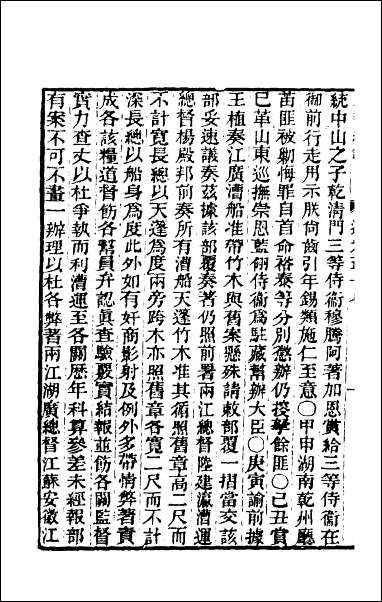 統中山之子乾清門三等侍衞穆騰阿著加恩賞給三等侍衞在
御前行走用示朕尙齒引年錫類施仁至意○甲申湖南乾州廳
苗匪被勦悔罪自首命裕泰等分別懲辦仍搜拏餘匪○己丑賞
已革山東巡撫崇恩藍翎侍衞爲駐藏幫辦大臣○庚寅諭前據
王植奏江廣漕船准帶竹木與舊案懸殊請敕部覆一摺當交該
部妥速議奏茲據該部覆奏著仍照前署兩江總督陸建瀛漕運
總督楊殿邦前奏所有漕船天蓬竹木准其循照舊章高二尺而
不計寬長總以天蓬爲度兩旁跨木亦照舊章各寬二尺而不計
深長總以船身爲度此外如有奸商影射及例外多帶情弊著責
成各該糧道督飭各幫員弁認眞查驗覈實結報並飭各關監督
實力查丈以杜爭執而利漕運至各關歷年科算參差未經報部
有案不可不畫一辦理以杜各弊著兩江湖廣總督江蘇安徽江